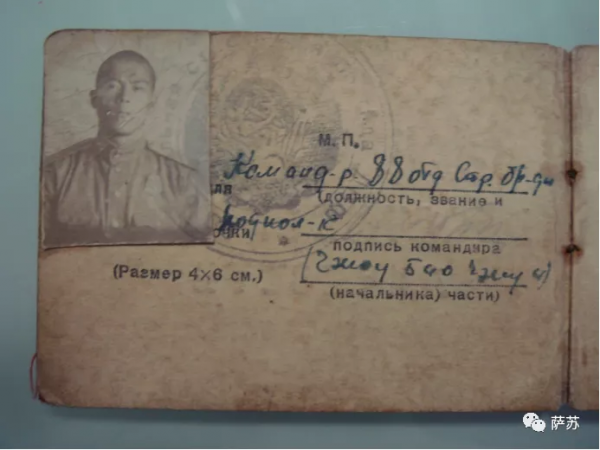 М. П.
Команд-р. 88 отд Стр. бр-ды
(должность, звание и
подпол-к
подпись командира
(Размер 4×6 см.)
(Чжоу Бао Чжун)
(начальника) части)
萨苏